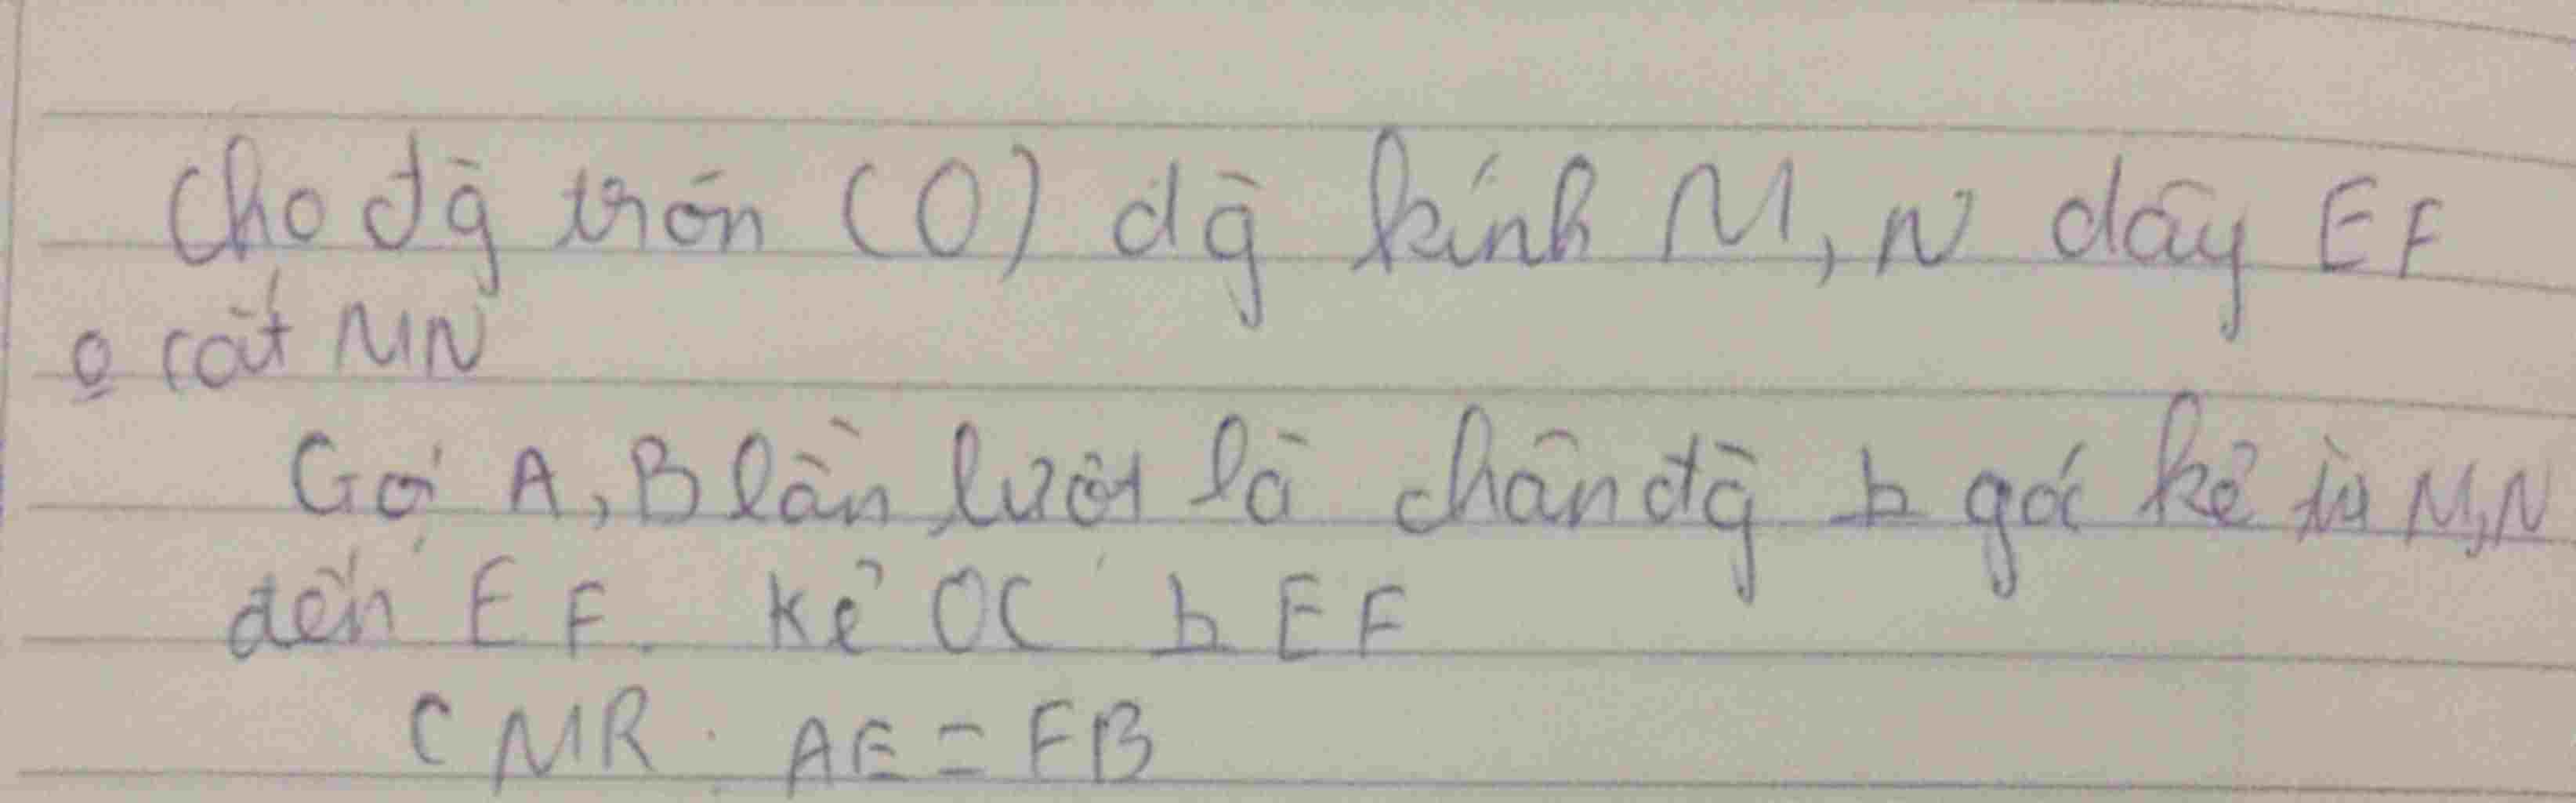 Cho đg tròn (O) đg kính M, N dây EF
o cắt MN
Gọi A, B lần lượt là chân đg ⊥ góc kẻ từ M, N
đến EF. Kẻ OC ⊥ EF
CMR. AE = FB